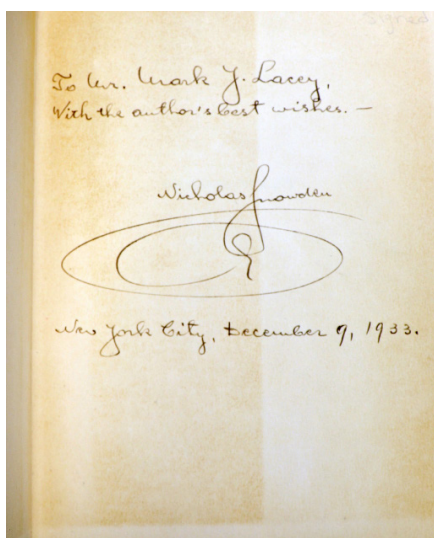 Signed
To Mr. Mark J. Lacey,
With the author's best wishes. —
Nicholas Snowden
New York City, December 9, 1933.